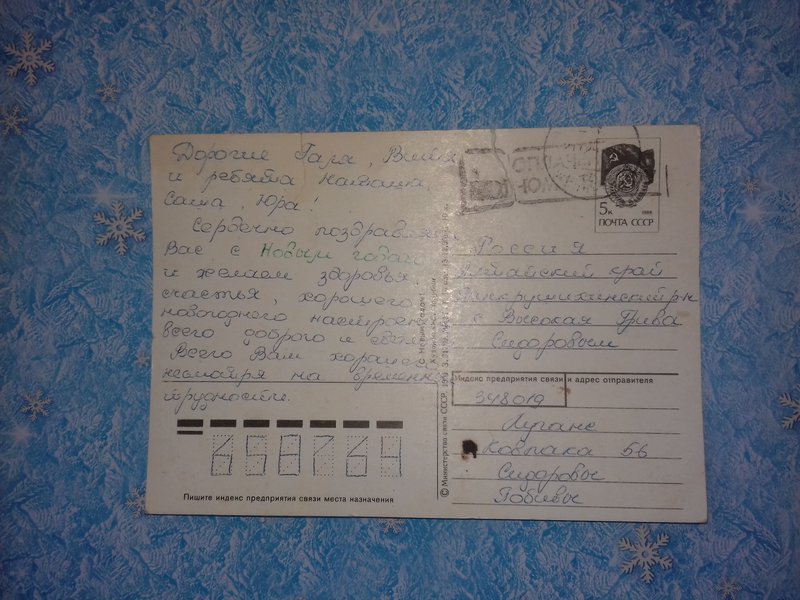 Дорогие Галя, Витя
и ребята Наташа,
Саша, Юра!
Сердечно поздравляем
Вас с Новым годом
и желаем здоровья
счастья, хорошего
новогоднего настроен
всего доброго и
Всего Вам хорошего
несмотря на временн
трудности.
658764
Пишите индекс предприятия связи места назначения
© Министерство связи СССР, 19
5к 1988
ПОЧТА СССР
Россия
Алтайский край
Панкрушихинский р-н
с Высокая Грива
Сидоровым
Индекс предприятия связи и адрес отправителя
348019
Луганс
Ковпака 56
Сидоровы